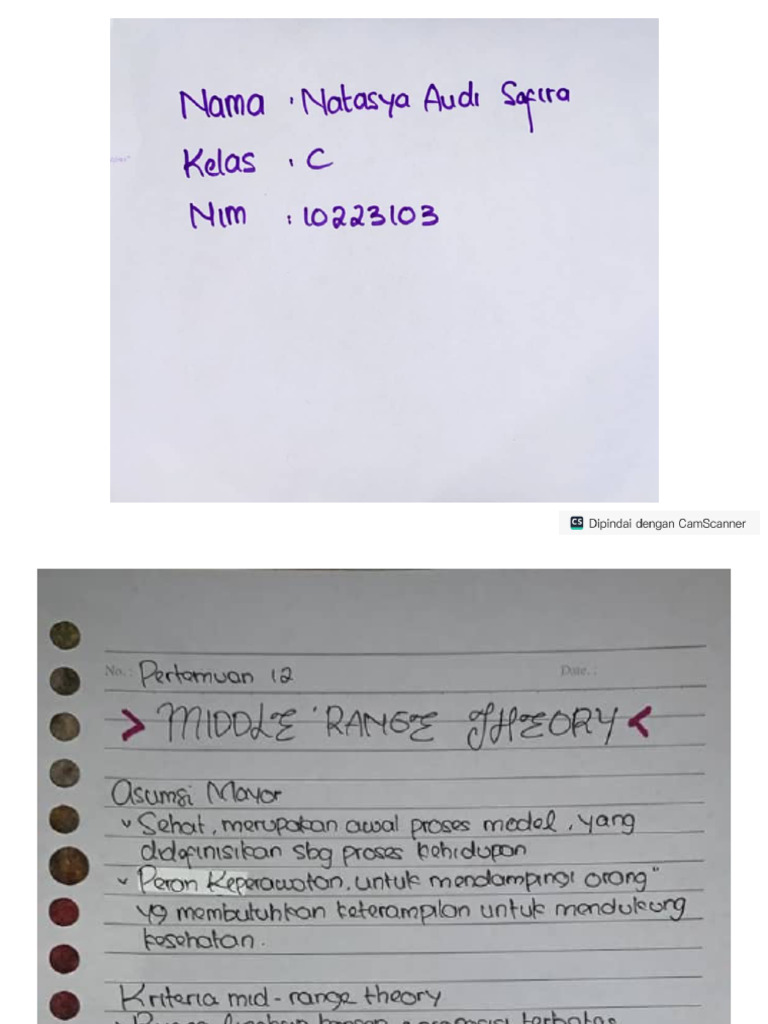 Nama : Natasya Audi Safira
Kelas : C
Nim : 10223103
CS Dipindai dengan CamScanner
No.: Pertemuan 12 Date.:
> MIDDLE RANGE THEORY <
Asumsi Mayor
v Sehat, merupakan awal proses model, yang
didefinisikan sbg proses kehidupan
v Peran Keperawatan, untuk mendampingi orang"
yg membutuhkan keterampilan untuk mendukung
kesehatan.
Kriteria mid-range theory